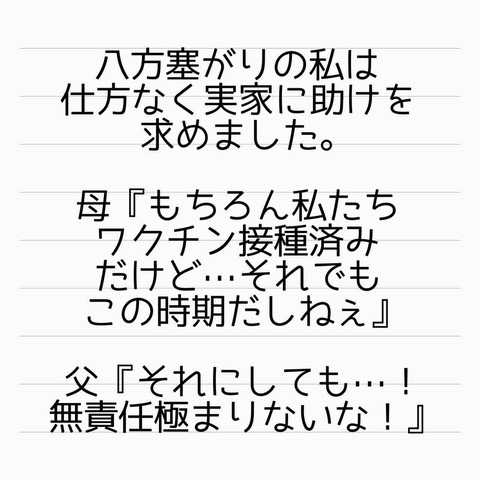 八方塞がりの私は
仕方なく実家に助けを
求めました。
母『もちろん私たち
ワクチン接種済み
だけど…それでも
この時期だしねぇ』
父『それにしても…！
無責任極まりないな！』